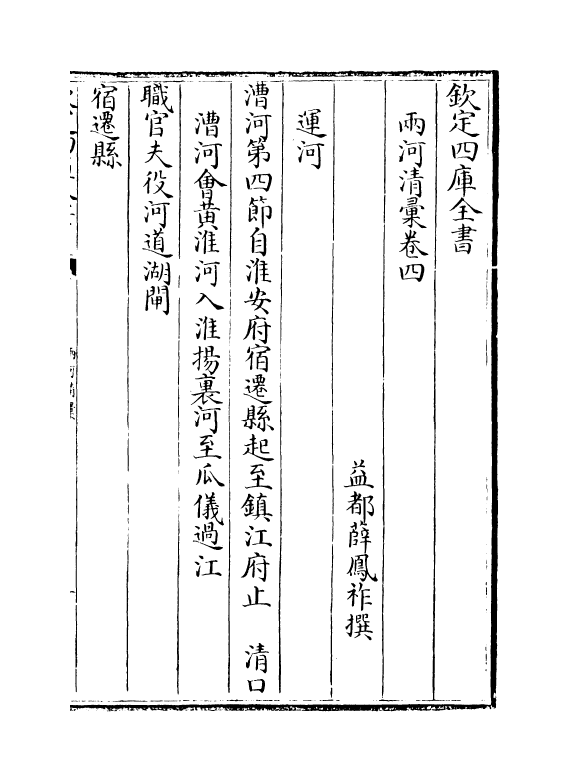 欽定四庫全書
兩河清彙卷四
益都薛鳳祚撰
運河
漕河第四節自淮安府宿遷縣起至鎮江府止　清口
漕河會黃淮河入淮揚裏河至瓜儀過江
職官夫役河道湖閘
宿遷縣